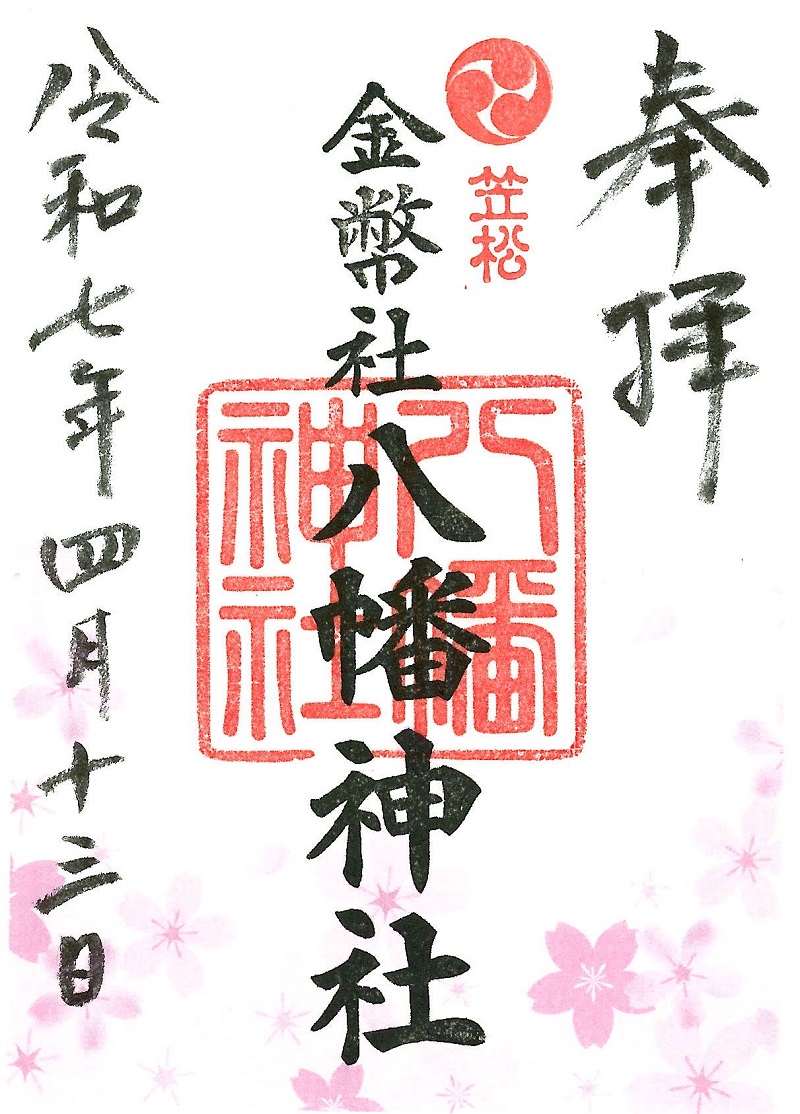 奉拝
笠松
金幣社八幡神社
八幡神社
令和七年四月十三日